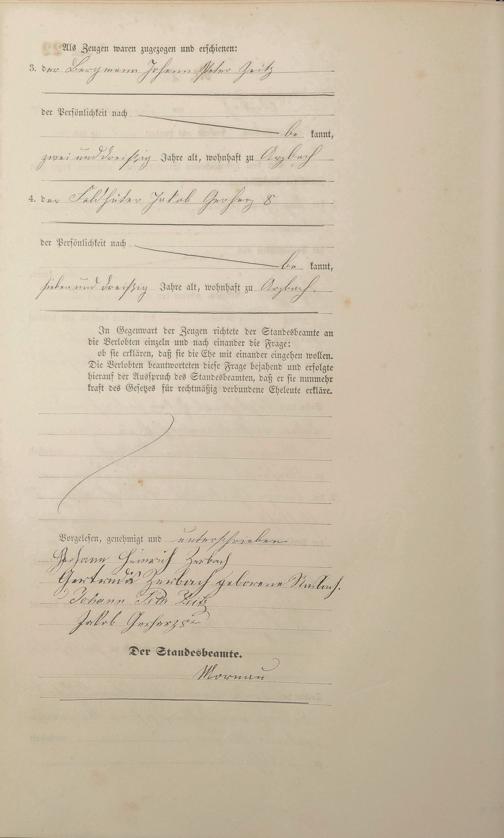 Als Zeugen waren zugezogen und erschienen:
3. der Bergmann Johann Peter Zeitz
der Persönlichkeit nach
be kannt,
zwei und dreißig Jahre alt, wohnhaft zu Arzbach
4. der Feldhüter Jakob Gerharz 8
der Persönlichkeit nach
be kannt,
sieben und dreißig Jahre alt, wohnhaft zu Arzbach.
In Gegenwart der Zeugen richtete der Standesbeamte an
die Verlobten einzeln und nach einander die Frage:
ob sie erklären, daß sie die Ehe mit einander eingehen wollen.
Die Verlobten beantworteten diese Frage bejahend und erfolgte
hierauf der Ausspruch des Standesbeamten, daß er sie nunmehr
kraft des Gesetzes für rechtmäßig verbundene Eheleute erkläre.
Vorgelesen, genehmigt und unterschrieben
Johann Heinrich Zerbach
Gertruda Zerbach geborene
Johann Peter
Jakob Gerharz
Der Standesbeamte.
Mornau